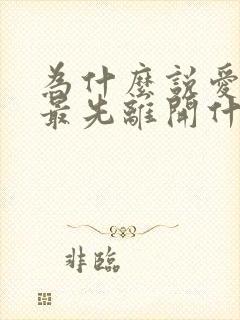 為什麼說愛
最先離開什
非臨